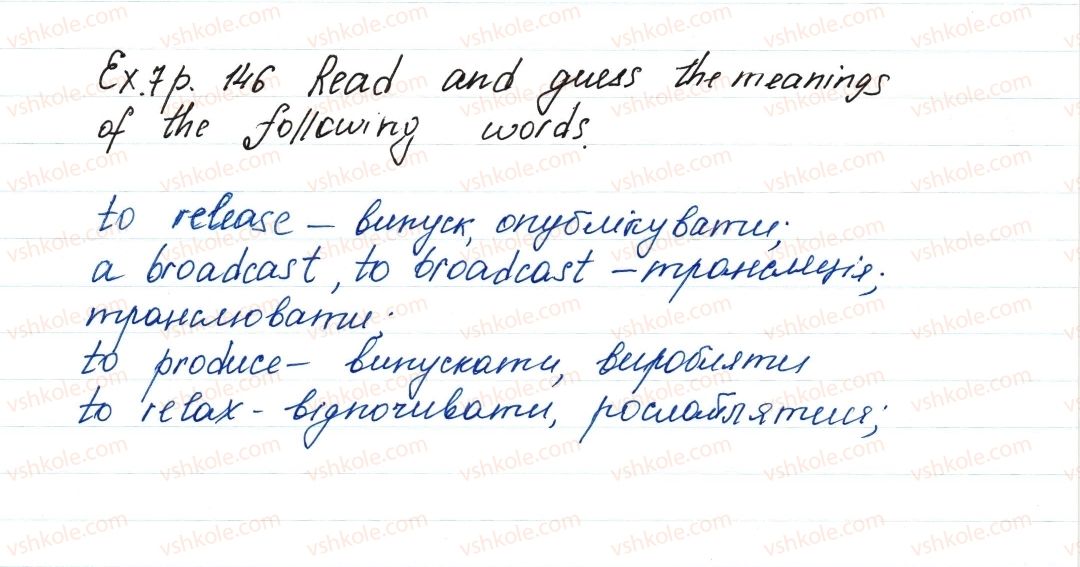 Ex. 7 p. 146 Read and guess the meanings
of the following words.
to release – випуск, опублікувати;
a broadcast, to broadcast – трансляція;
транслювати;
to produce – випускати, виробляти
to relax - відпочивати, рослаблятися;
vshkole.com